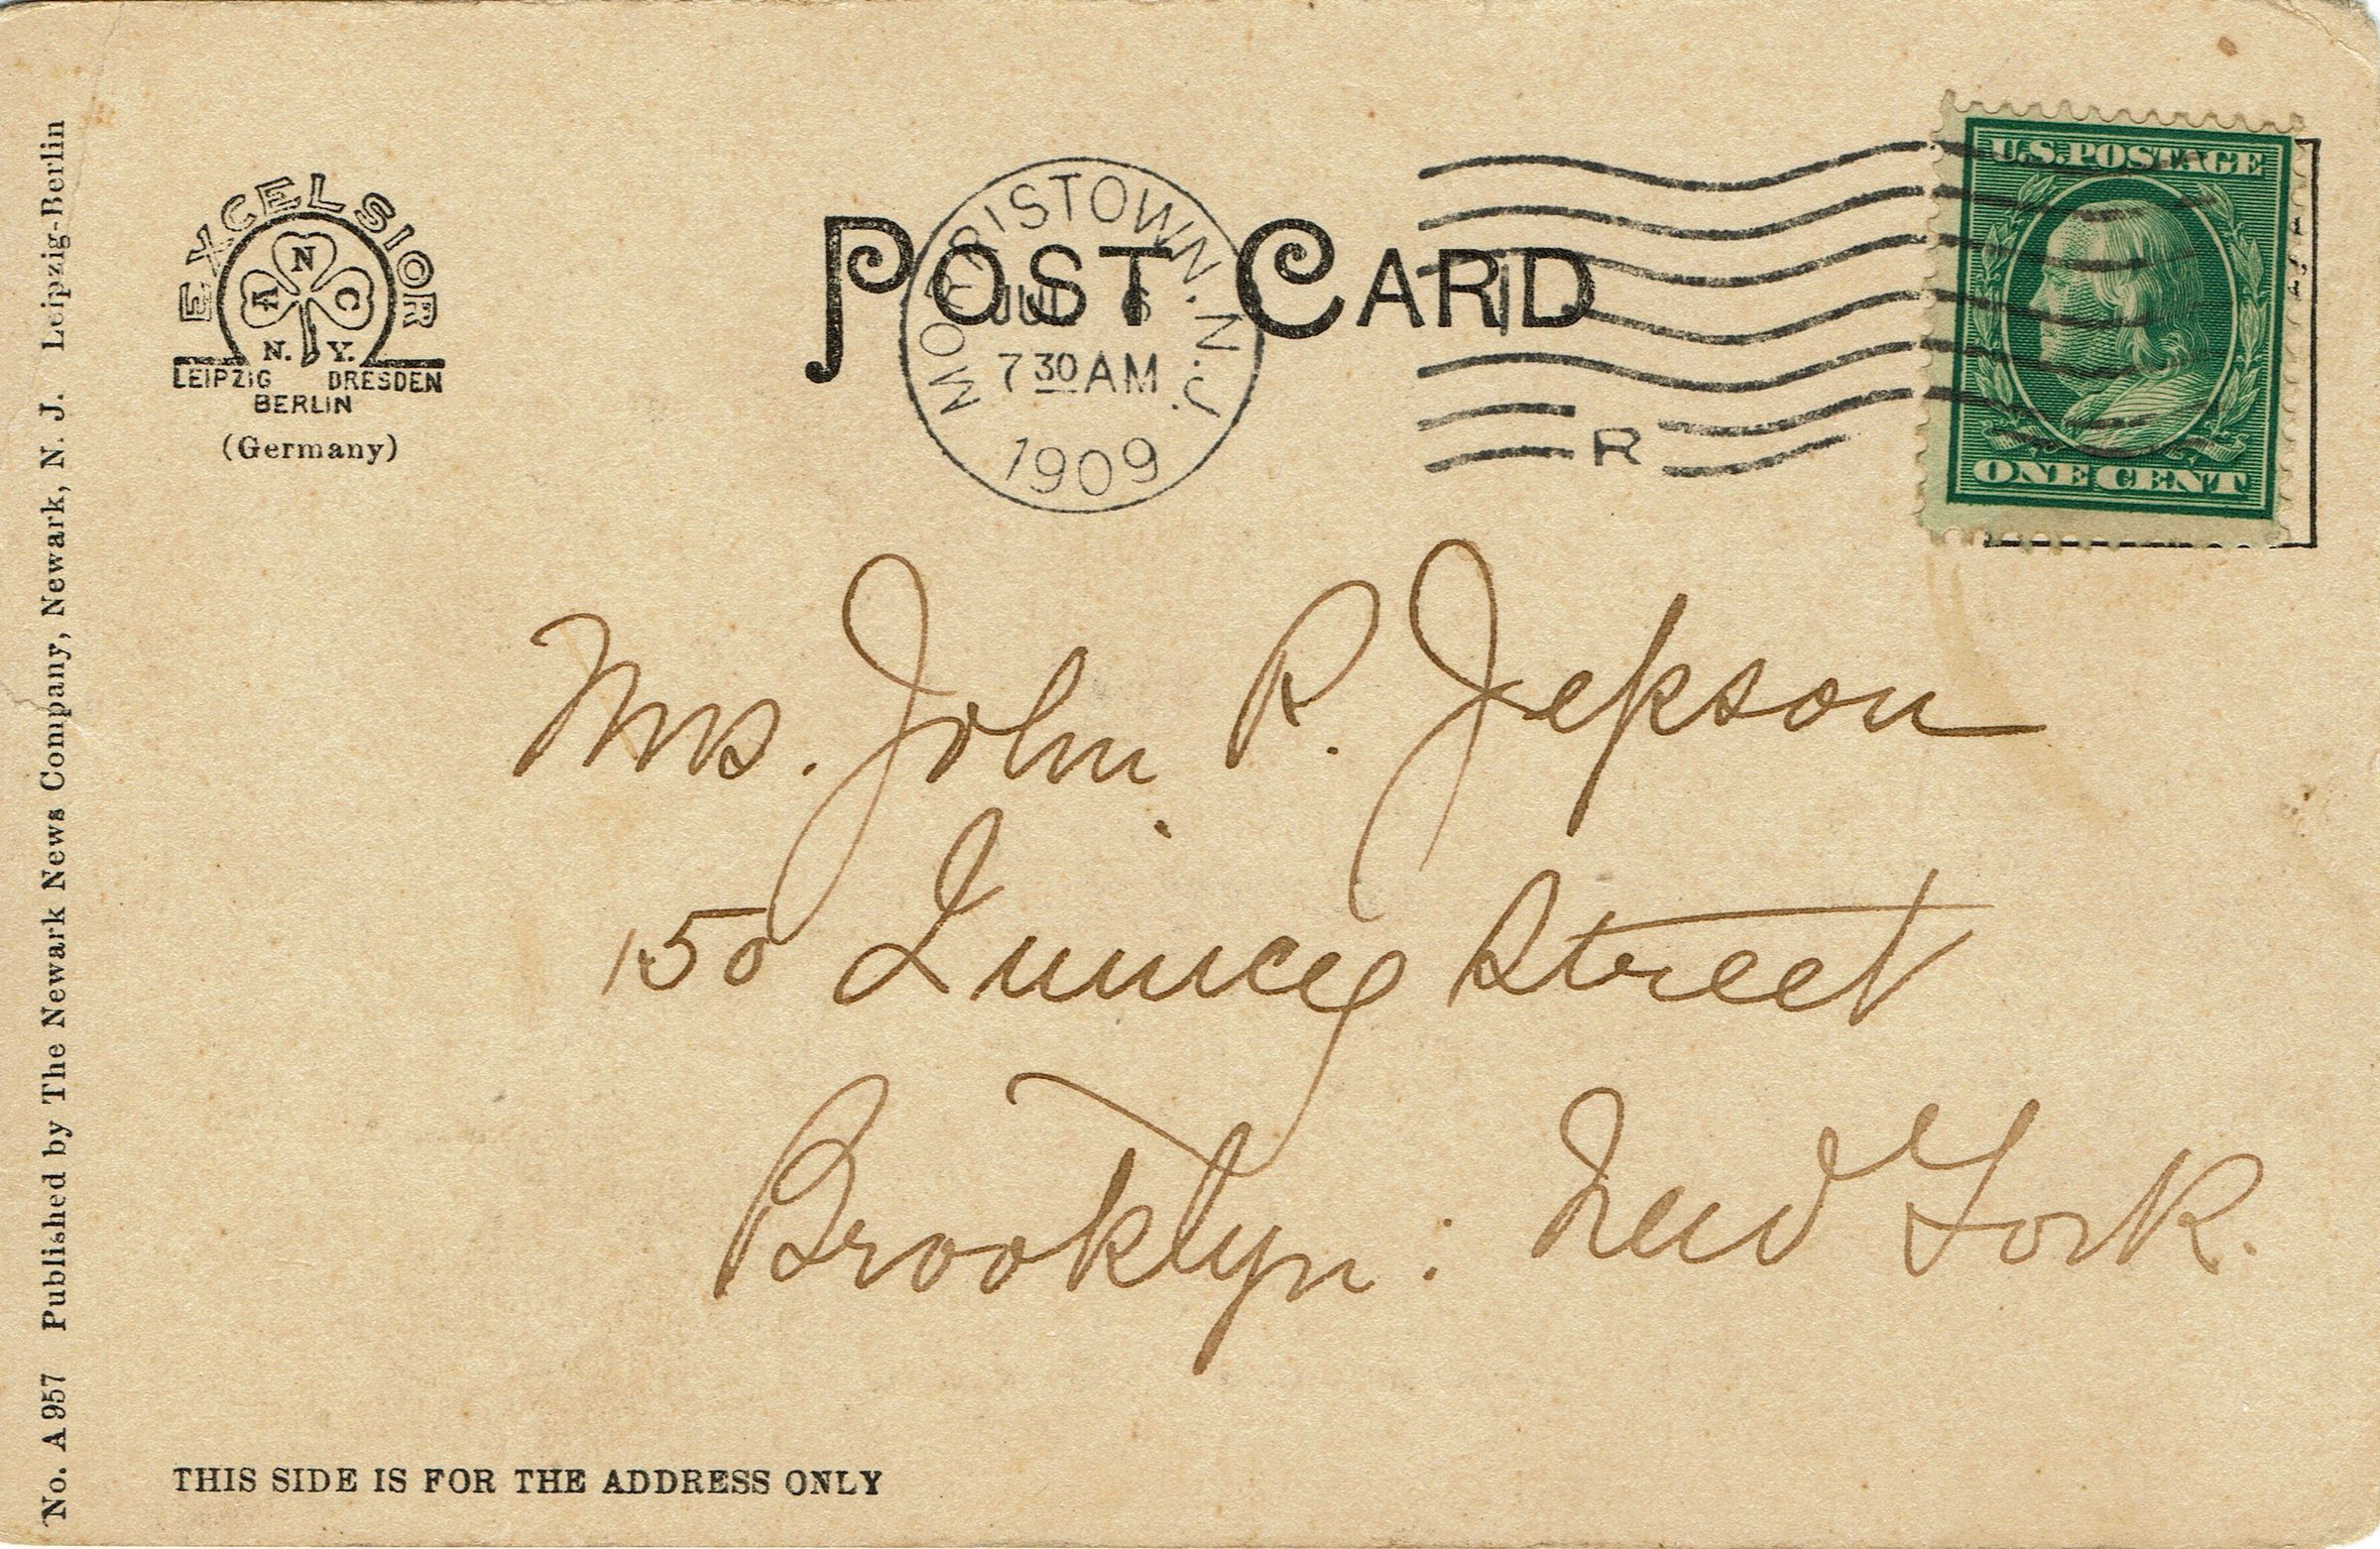 No. A 957 Published by The Newark News Company, Newark, N. J. Leipzig-Berlin
EXCELSIOR
A N C
N. Y.
LEIPZIG DRESDEN
BERLIN
(Germany)
POST CARD
MORRISTOWN. N.J.
JUL
7 30 AM
1909
R
U.S. POSTAGE
ONE CENT
Mrs. John R. Jepson
150 Quincy Street
Brooklyn: New York.
THIS SIDE IS FOR THE ADDRESS ONLY